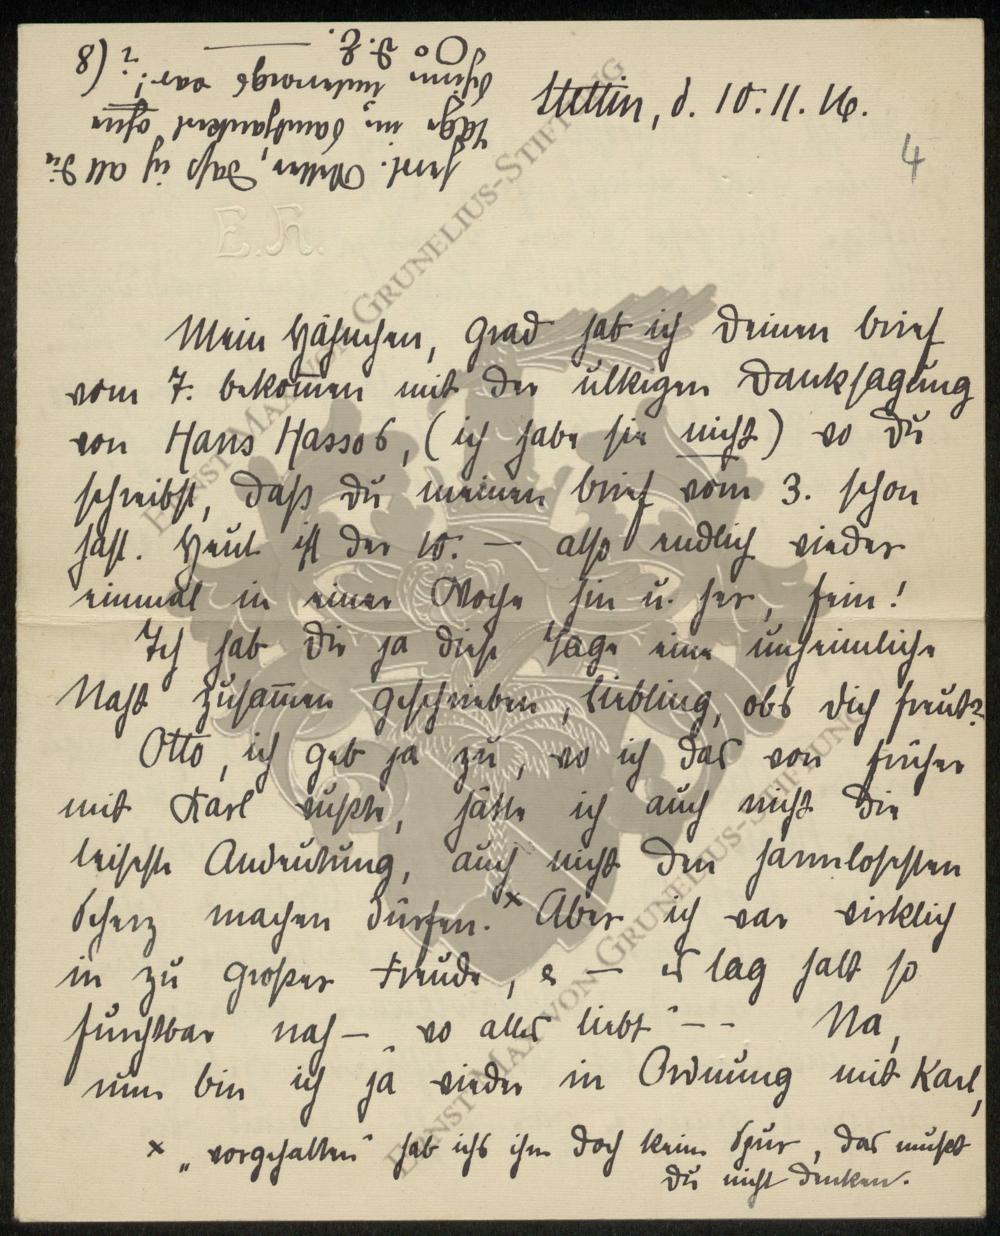 Stettin, d. 10.11.16.
4
E.R.
Mein Hähnchen, Grad hab ich Deinen Brief
vom 7. bekom̄en mit der ulkigen Danksagung
von Hans Hassos, (ich habe sie nicht) wo Du
schreibst, daß Du meinen Brief vom 3. schon
hast. Heut ist der 10. — also endlich wieder
einmal in einer Woche hin u. her, fein!
Ich hab Dir ja diese Tage eine unheimliche
Naht zusam̄en geschrieben, Liebling, obs Dich freut?
Otto, ich geb ja zu, wo ich das von früher
mit Karl wußte, hätte ich auch nicht die
leiseste Andeutung, auch nicht den harmlosesten
Scherz machen dürfen.x Aber ich war wirklich
in zu großer Freude, u — es lag halt so
furchtbar nah — „wo alles liebt" -- Na,
nun bin ich ja wieder in Ordnung mit Karl,
x „vorgehalten" hab ichs ihm doch keine Spur, das mußt
Du nicht denken.
daß ich all die
Tage in Dankbarkeit ohne
8)
Ernst Max von Grunelius-Stiftung
Ernst Max von Grunelius-Stiftung